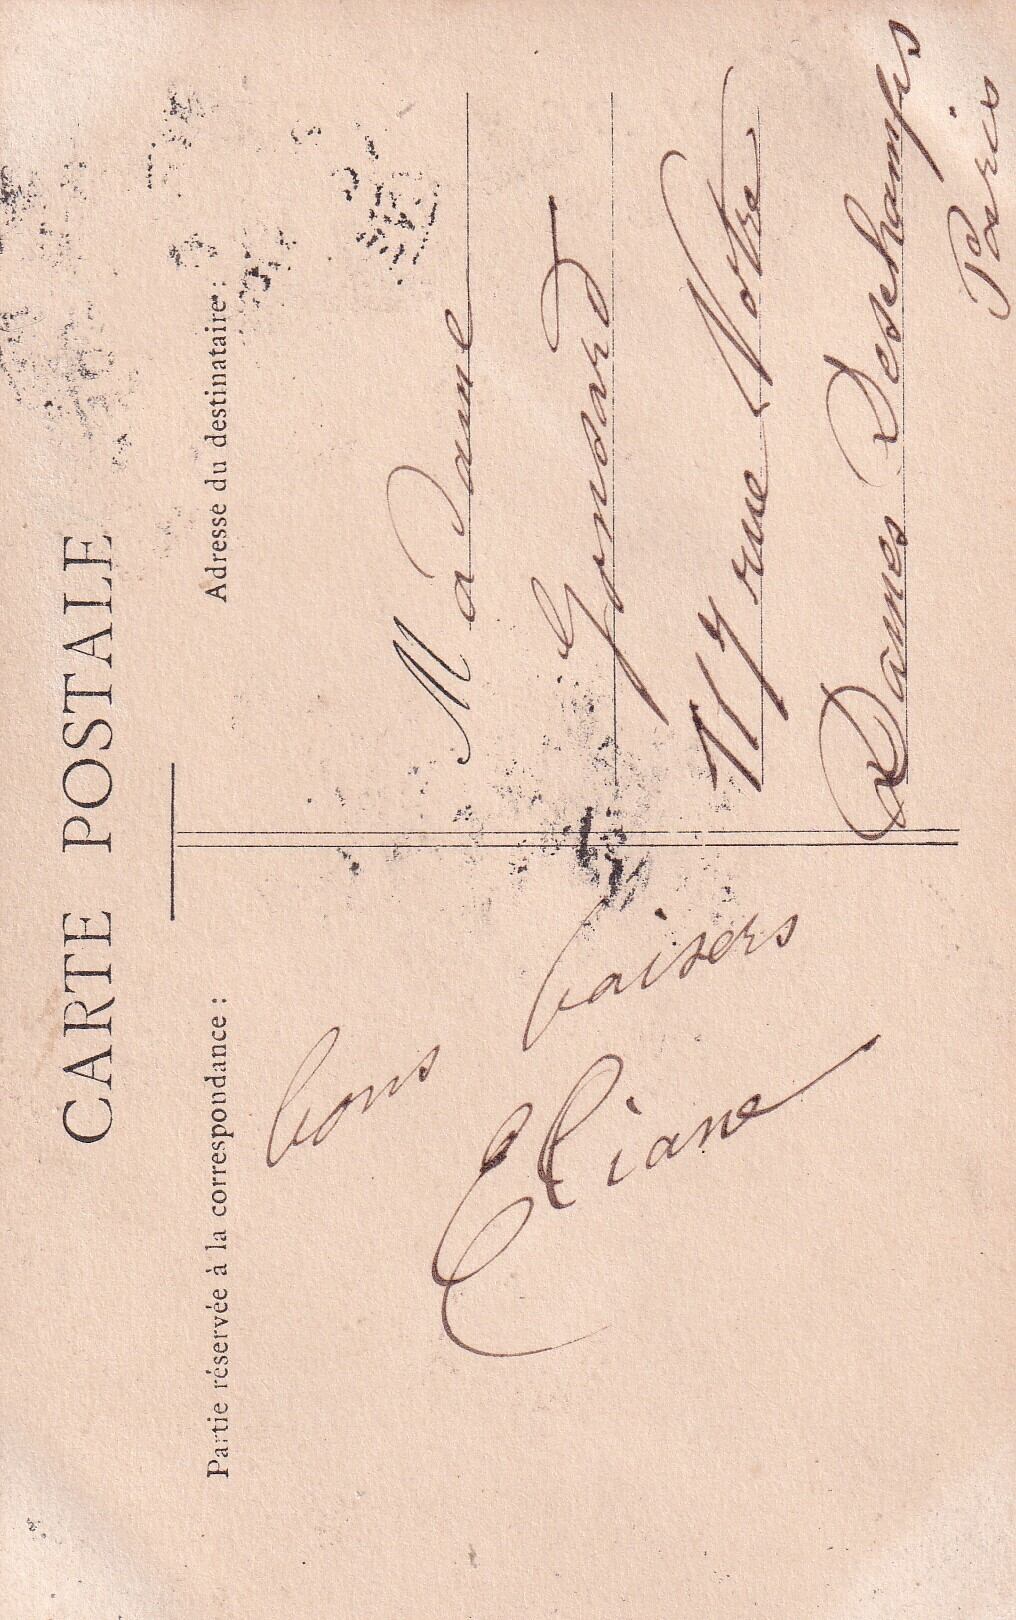 CARTE POSTALE
Partie réservée à la correspondance :
bons
baisers
Eliane
Adresse du destinataire :
Madame
Gondard
117 rue Notre
Dames Deschamps
Paris